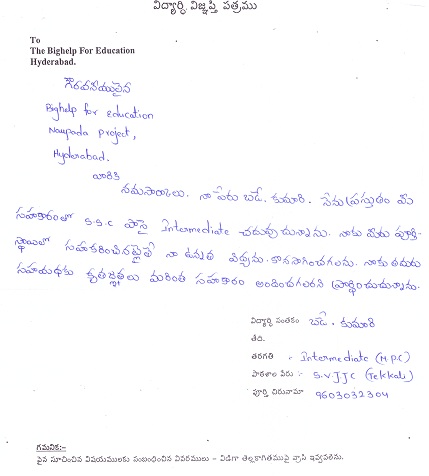 విద్యార్థి విజ్ఞప్తి పత్రము
To
The Bighelp For Education
Hyderabad.
గౌరవనీయులైన
Bighelp for education
Naupada project,
Hyderabad.
వారికి
నమస్కారాలు. నా పేరు బడే. కుమారి. నేను ప్రస్తుతం మీ
సహకారంతో S.S.C పాసై Intermediate చదువుచున్నాను. నాకు మీరు పూర్తి-
స్థాయిలో సహకరించినట్లైతే నా ఉన్నత విద్యను కొనసాగించగలను. నాకు తమరు
సహాయకు కృతజ్ఞతలు మరింత సహకారం అందించగలరని ప్రార్థించుచున్నాను.
విద్యార్థి సంతకం బడే. కుమారి
తేది.
తరగతి : Intermediate (M.P.C)
పాఠశాల పేరు : S.V.J.J.C (Tekkali)
పూర్తి చిరునామా 9603032304
గమనిక:-
పైన సూచించిన విషయములకు సంబంధించిన వివరములు - విడిగా తెల్లకాగితముపై వ్రాసి ఇవ్వవలెను.